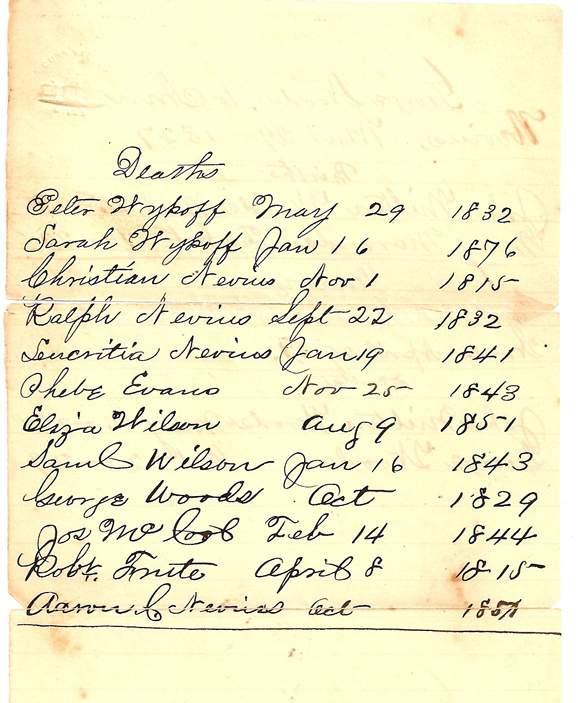 Deaths
Peter Wykoff May 29 1832
Sarah Wykoff Jan 16 1876
Christian Nevius Nov 1 1815
Ralph Nevius Sept 22 1832
Leucritia Nevius Jan 19 1841
Phebe Evans Nov 25 1843
Eliza Wilson Aug 9 1851
Saml Wilson Jan 16 1843
George Woods Oct 1829
Jos Mc Cool Feb 14 1844
Robt. Frute April 8 1815
Aaron C Nevius Oct